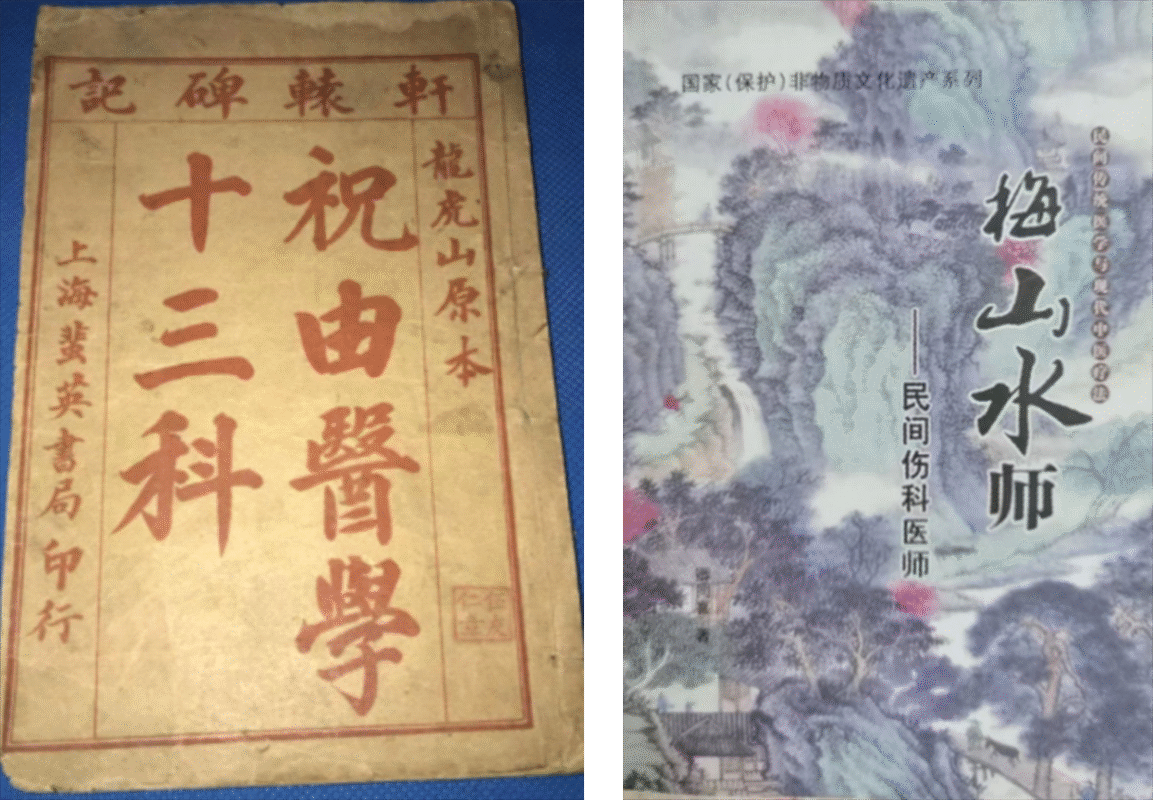 軒轅碑記
龍虎山原本
祝由醫學
十三科
上海蜚英書局印行
国家(保护)非物质文化遗产系列
民间传统医学与现代中医疗法
梅山水师
——民间伤科医师